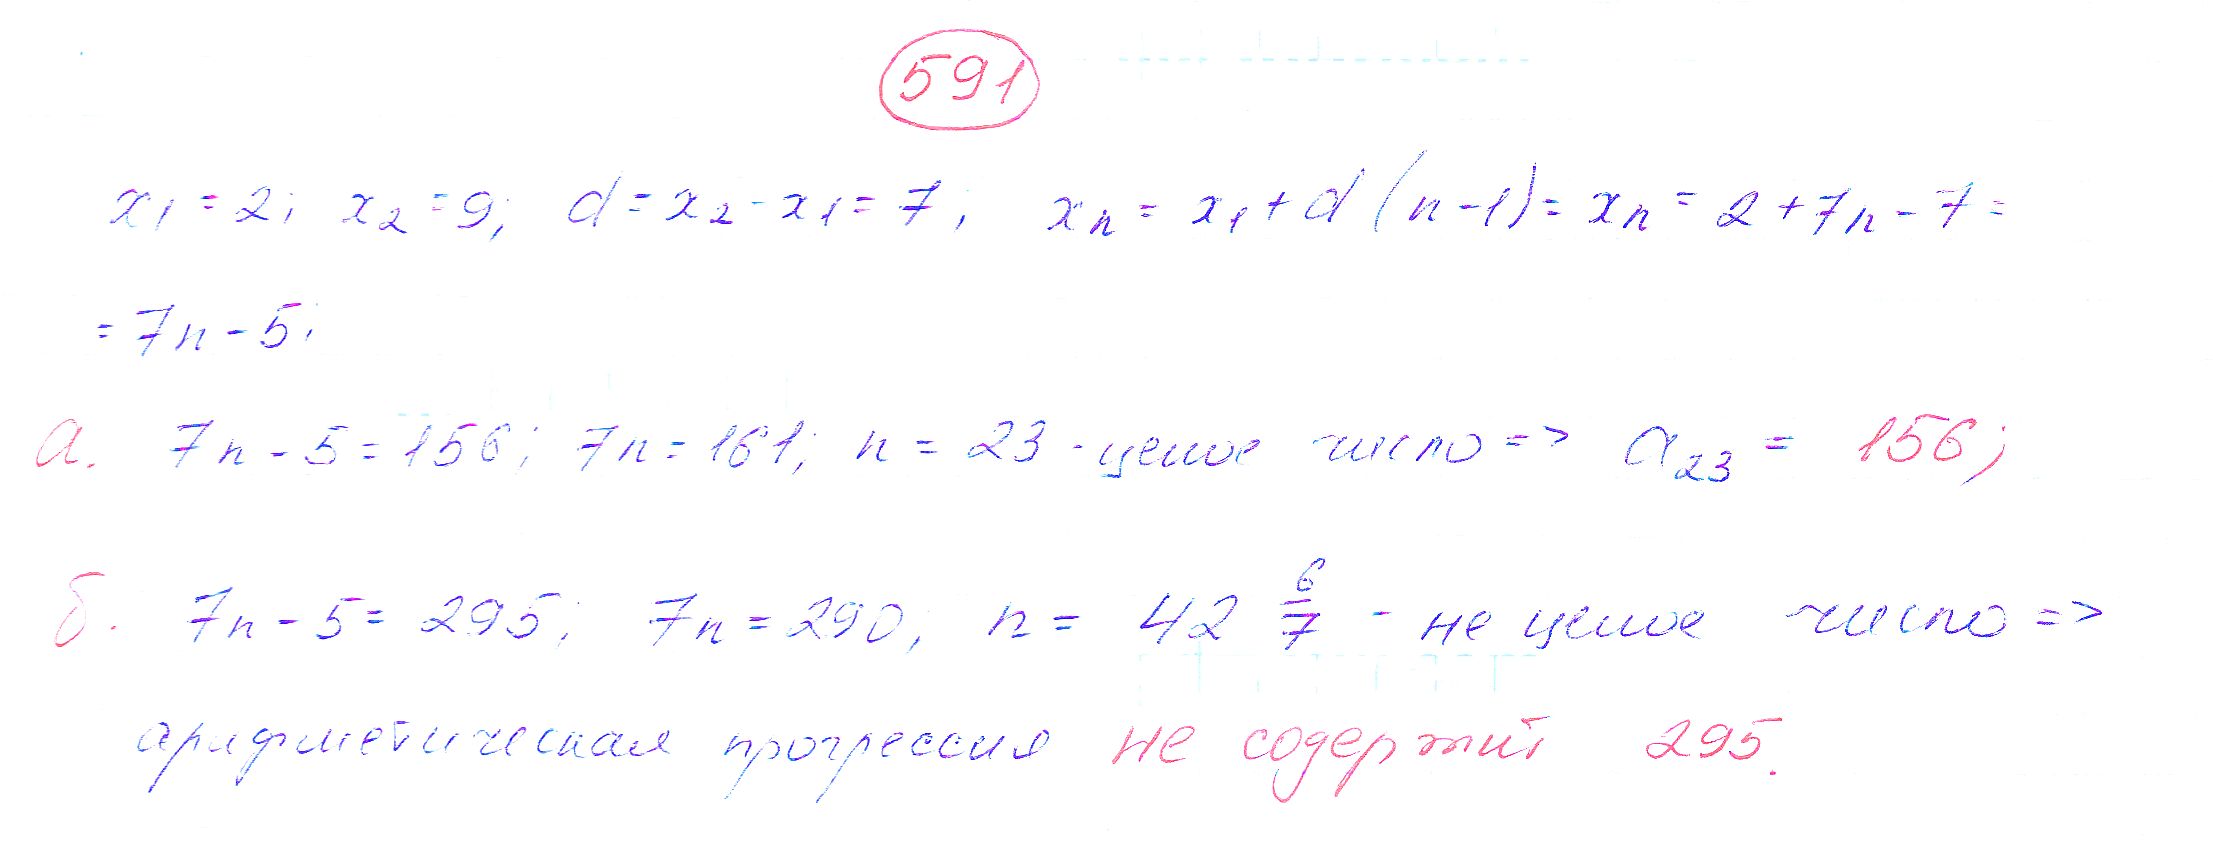 591
x₁ = 2; x₂ = 9; d = x₂ - x₁ = 7; xₙ = x₁ + d (n-1) = xₙ = 2 + 7n - 7 =
= 7n - 5;
а. 7n - 5 = 156; 7n = 161; n = 23 - целое число => a₂₃ = 156;
б. 7n - 5 = 295; 7n = 290; n = 42 6/7 - не целое число =>
арифметическая прогрессия не содержит 295.